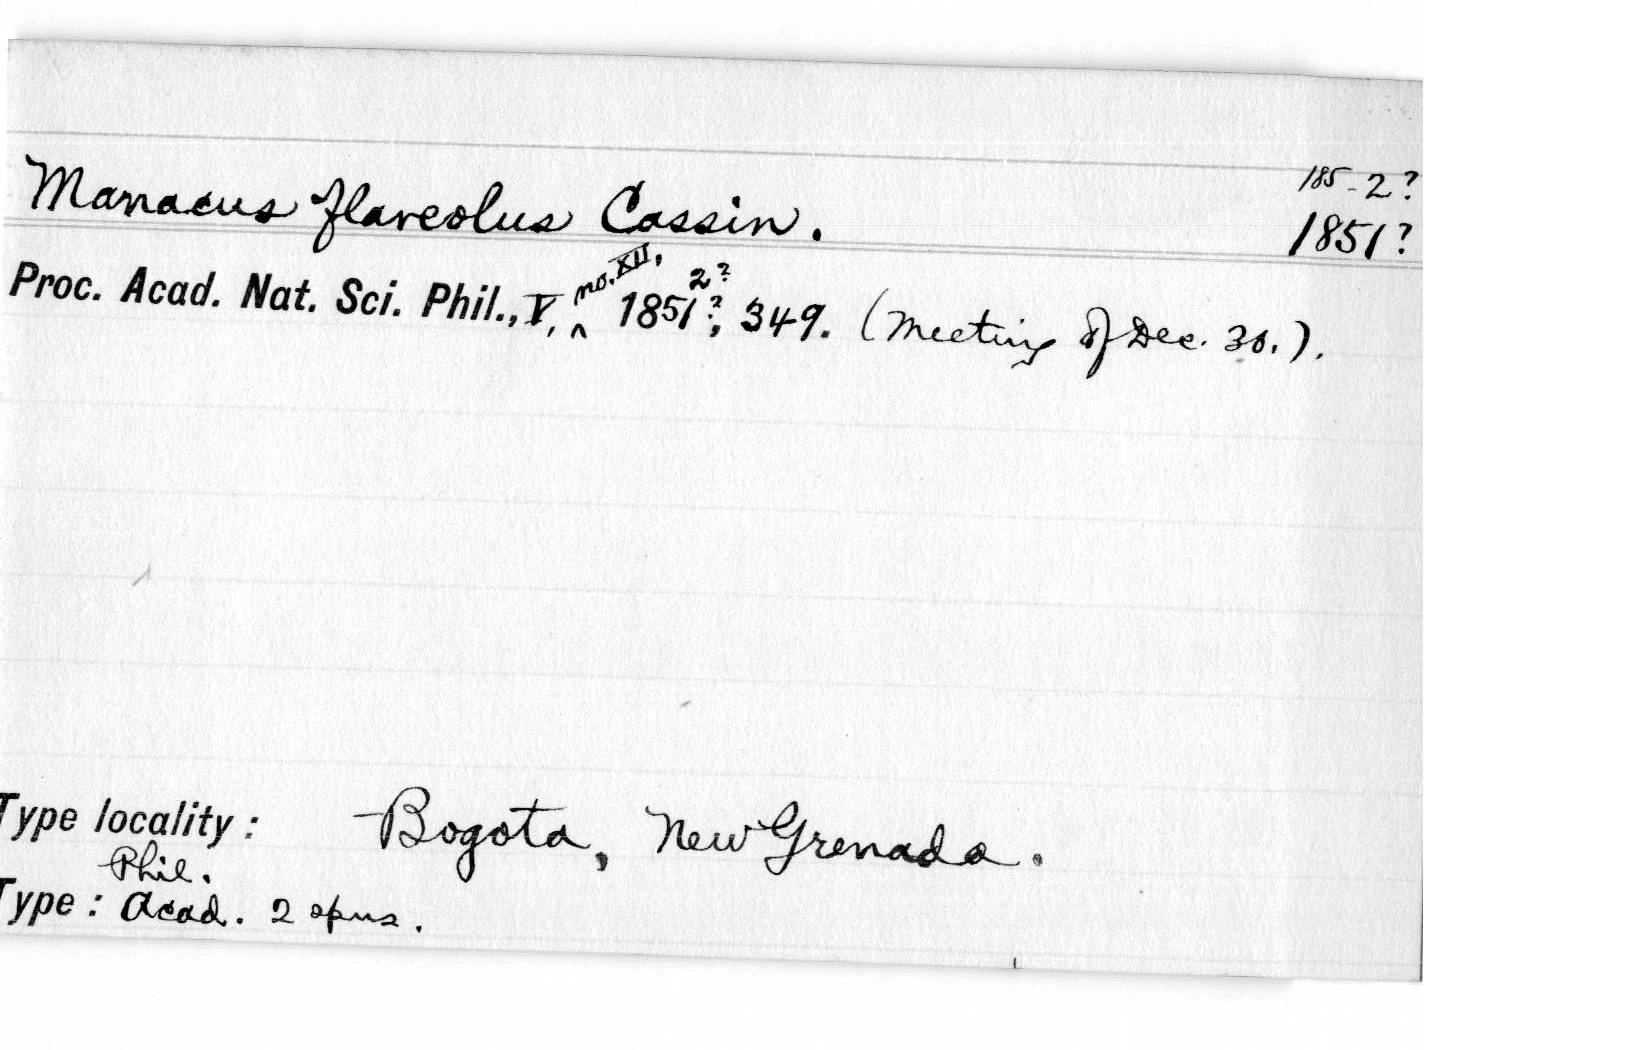 185-2?
Manacus flaveolus Cassin. 1851?
Proc. Acad. Nat. Sci. Phil., V, no. XII, 1851?, 2? 349. (Meeting of Dec. 30.).
Type locality: Bogota, New Grenada.
Phil.
Type: Acad. 2 spns.